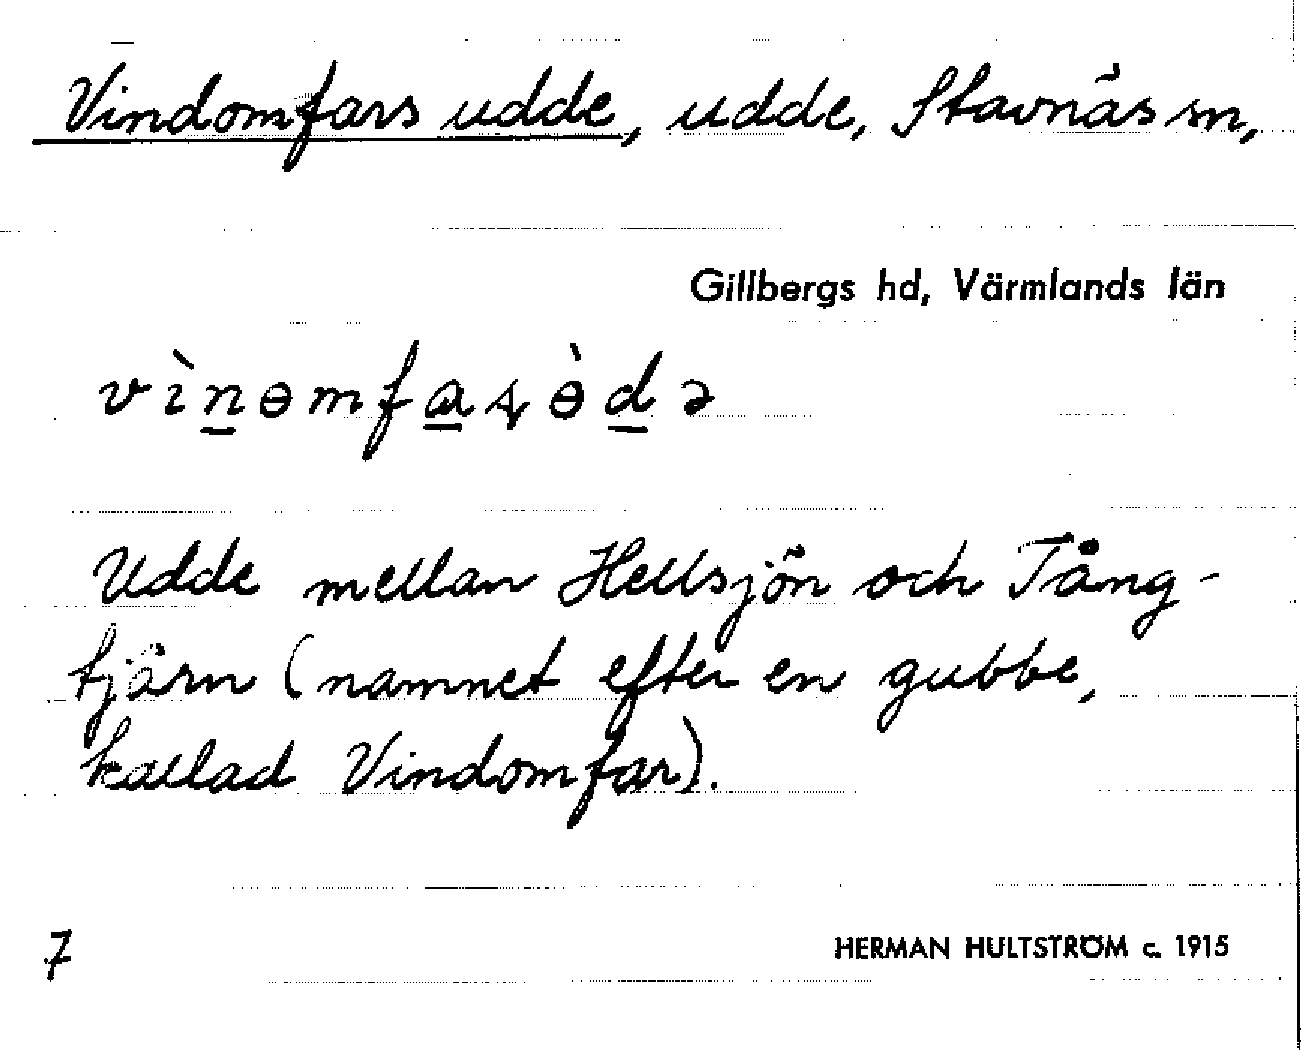 Vindomfars udde, udde, Stavnäs sn,
Gillbergs hd, Värmlands län
Udde mellan Hellsjön och Tång-
tjärn (namnet efter en gubbe,
kallad Vindomfar).
7
HERMAN HULTSTRÖM c. 1915